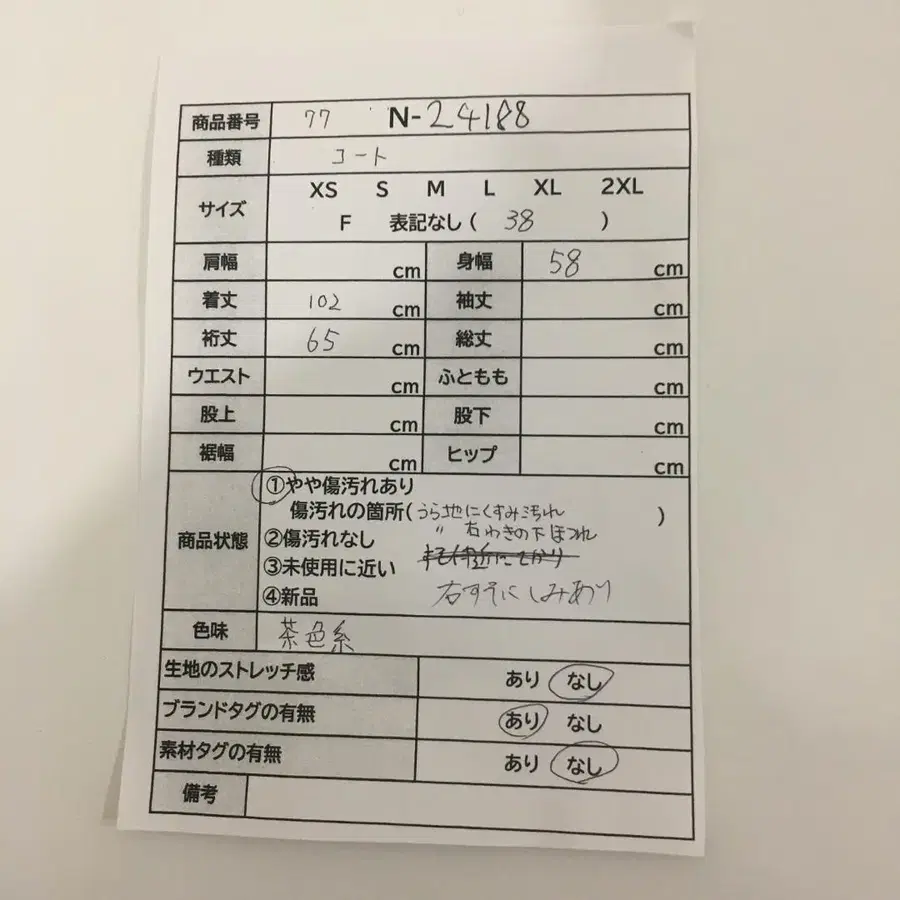 商品番号 77 N-24188
種類 コート
サイズ XS S M L XL 2XL
F 表記なし ( 38 )
肩幅 cm 身幅 58 cm
着丈 102 cm 袖丈 cm
裄丈 65 cm 総丈 cm
ウエスト cm ふともも cm
股上 cm 股下 cm
裾幅 cm ヒップ cm
商品状態
①やや傷汚れあり
傷汚れの箇所(うら地にくすみ汚れ )
〃 右わきの下ほつれ
②傷汚れなし
③未使用に近い
④新品 右すそにしみあり
色味 茶色系
生地のストレッチ感 あり なし
ブランドタグの有無 あり なし
素材タグの有無 あり なし
備考